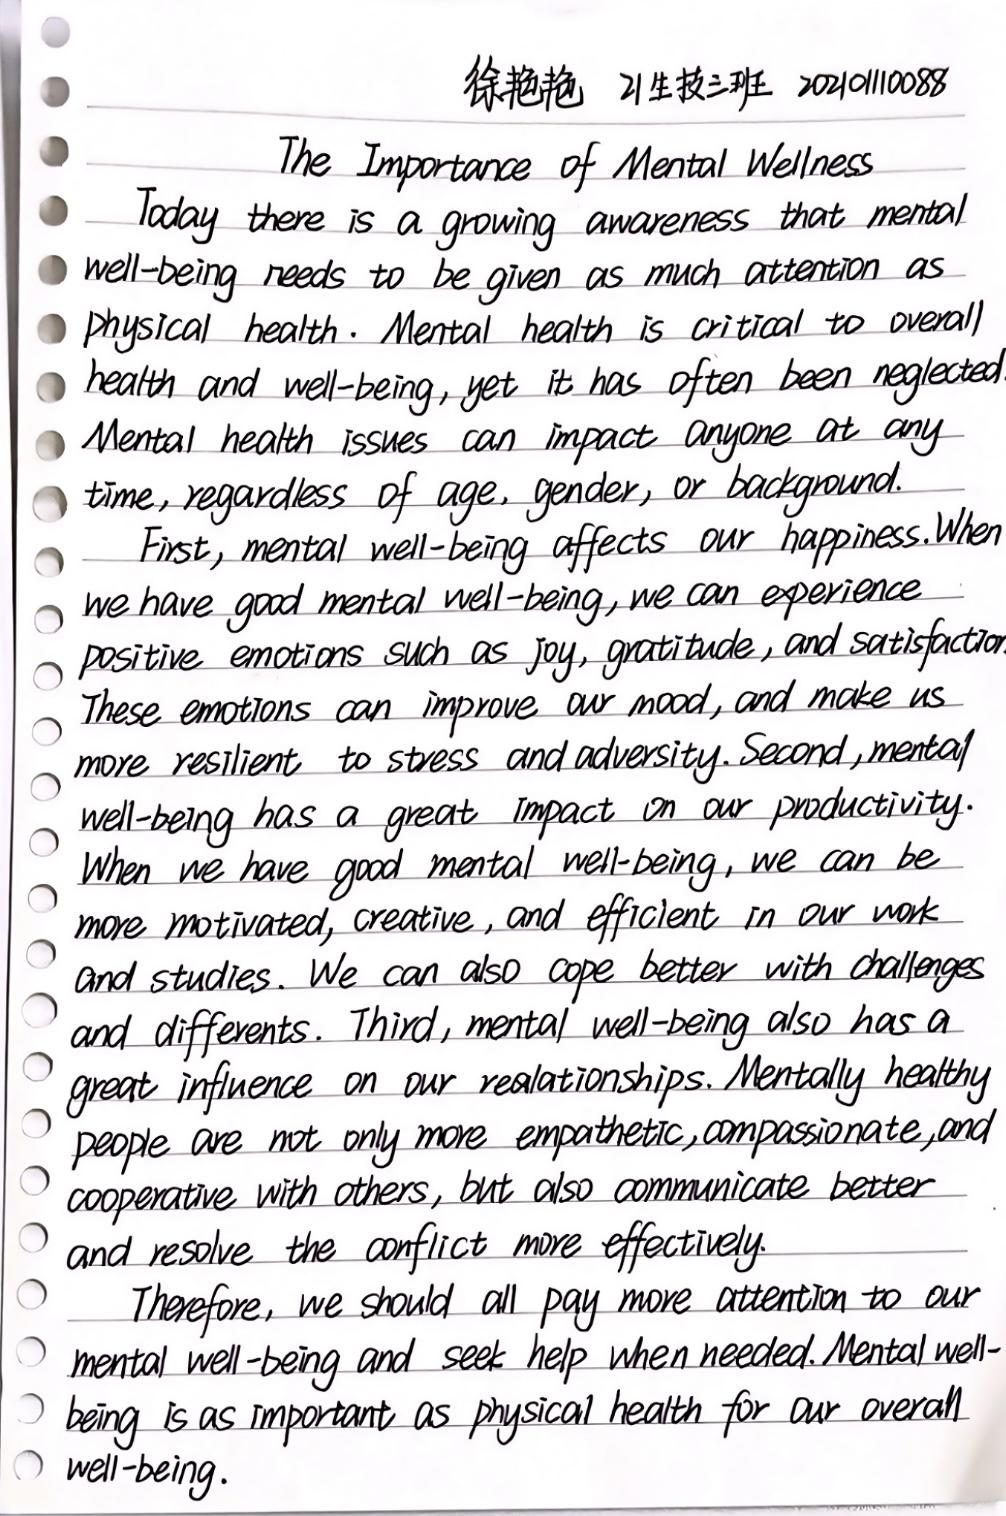 徐艳艳 21生技三班 20210110088
The Importance of Mental Wellness
Today there is a growing awareness that mental
well-being needs to be given as much attention as
physical health. Mental health is critical to overall
health and well-being, yet it has often been neglected.
Mental health issues can impact anyone at any
time, regardless of age, gender, or background.
First, mental well-being affects our happiness. When
we have good mental well-being, we can experience
positive emotions such as joy, gratitude, and satisfaction.
These emotions can improve our mood, and make us
more resilient to stress and adversity. Second, mental
well-being has a great impact on our productivity.
When we have good mental well-being, we can be
more motivated, creative, and efficient in our work
and studies. We can also cope better with challenges
and differents. Third, mental well-being also has a
great influence on our realationships. Mentally healthy
people are not only more empathetic, compassionate, and
cooperative with others, but also communicate better
and resolve the conflict more effectively.
Therefore, we should all pay more attention to our
mental well-being and seek help when needed. Mental well-
being is as important as physical health for our overall
well-being.